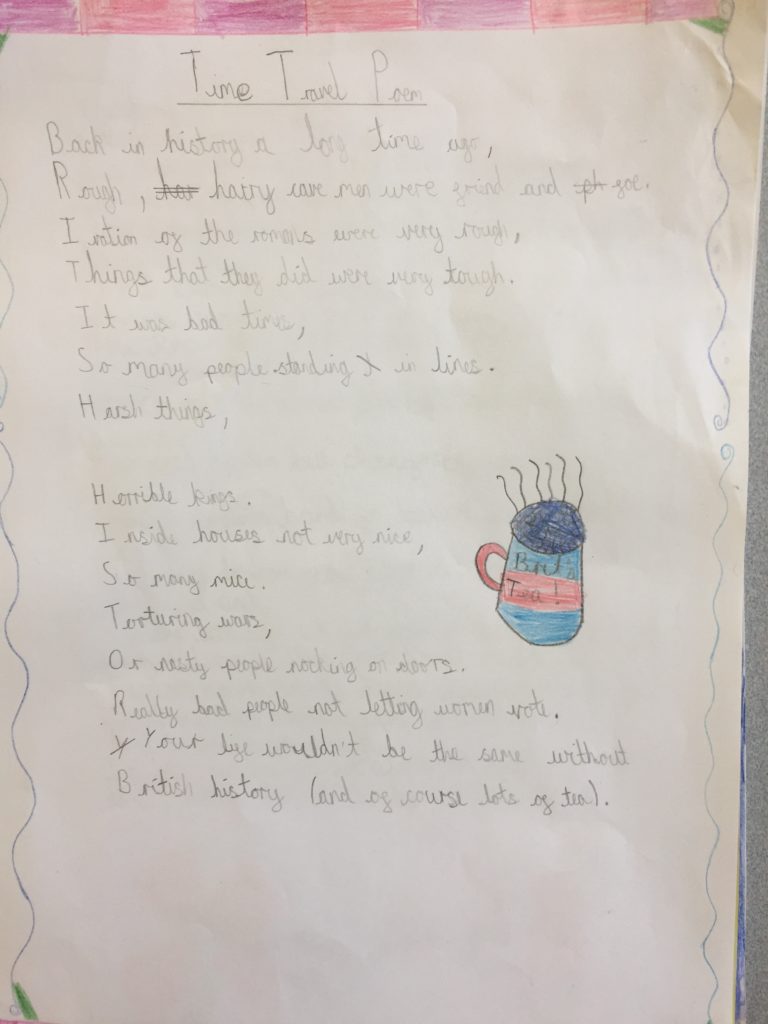 Time Travel Poem
Back in history a long time ago,
Rough, hairy cave men were frind and foe.
of the romans were very rough,
Things that they did were very tough.
It was bad times,
So many people standing in lines.
Harsh things,
Horrible kings.
Inside houses not very nice,
So many mice.
Torturing wars,
Or nasty people nocking on doors.
Really bad people not letting women vote.
Your life wouldn't be the same without
British history (and of course lots of tea).
Brit's
Tea!